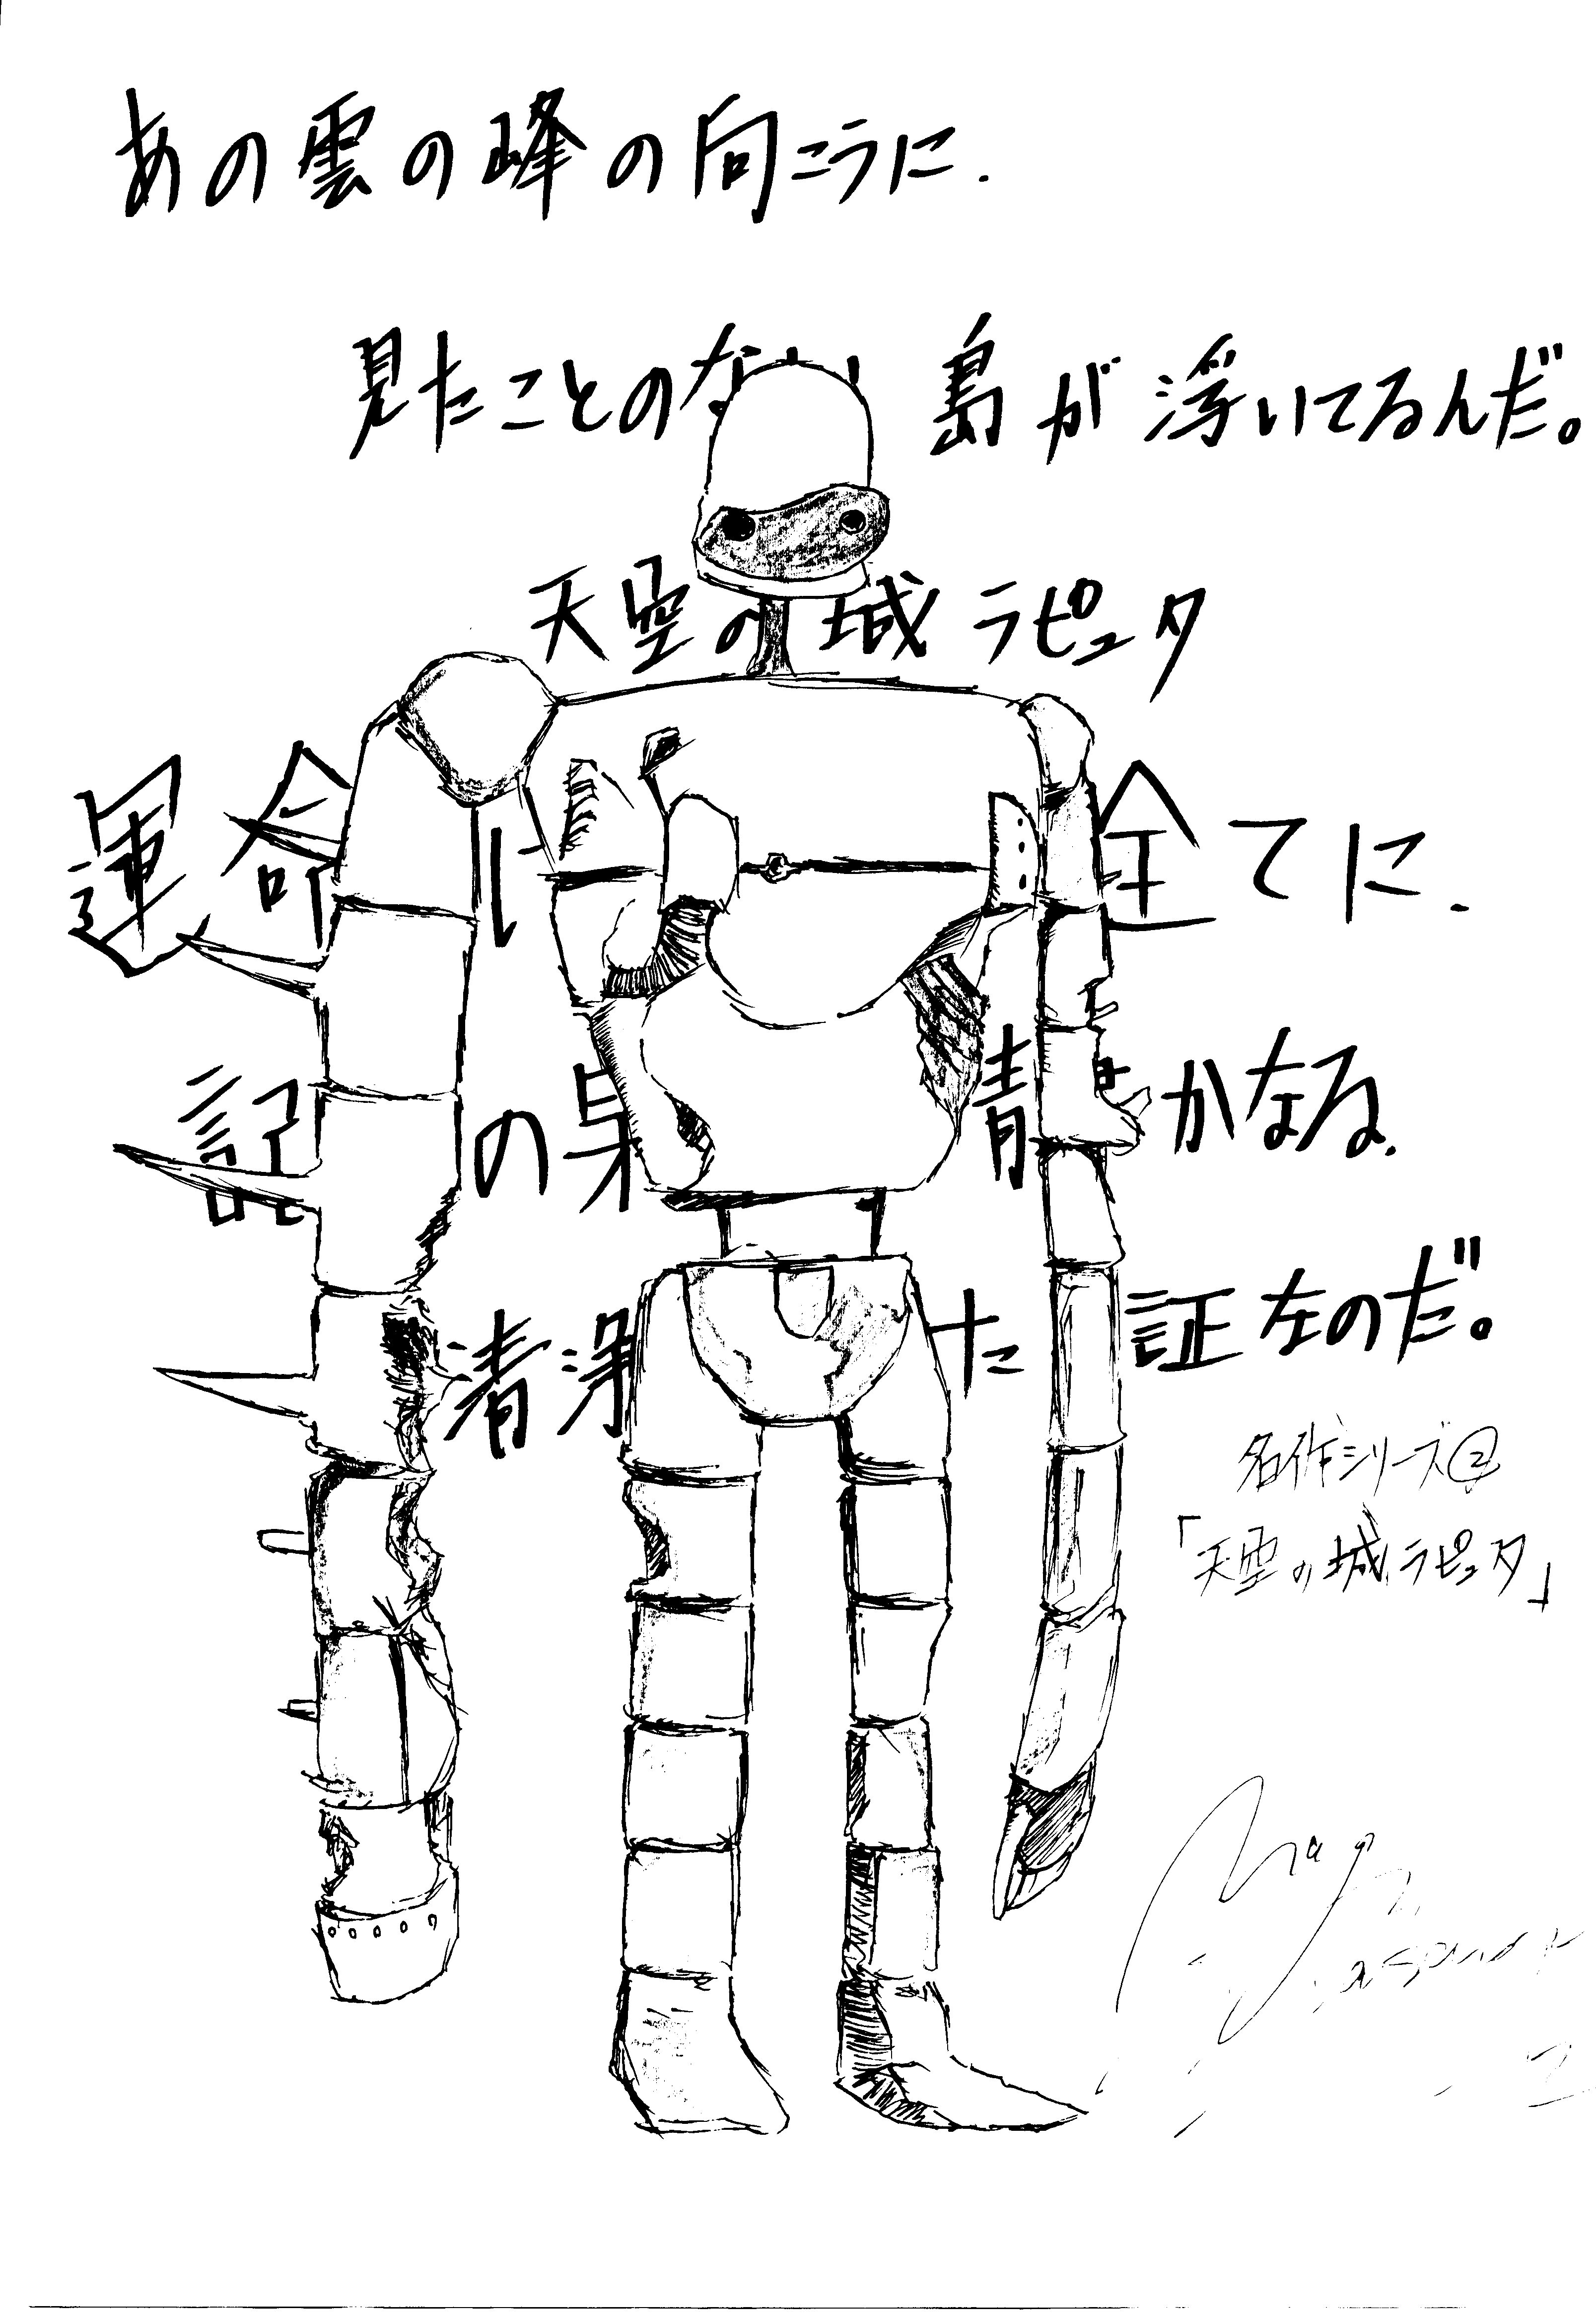 あの雲の峰の向こうに.
見たことのな 島が浮いてるんだ。
天空の城ラピュタ
運命 に 全てに.
記 の果 青 かなる.
清浄 た 証左のだ。
名作シリーズ②
「天空の城ラピュタ」